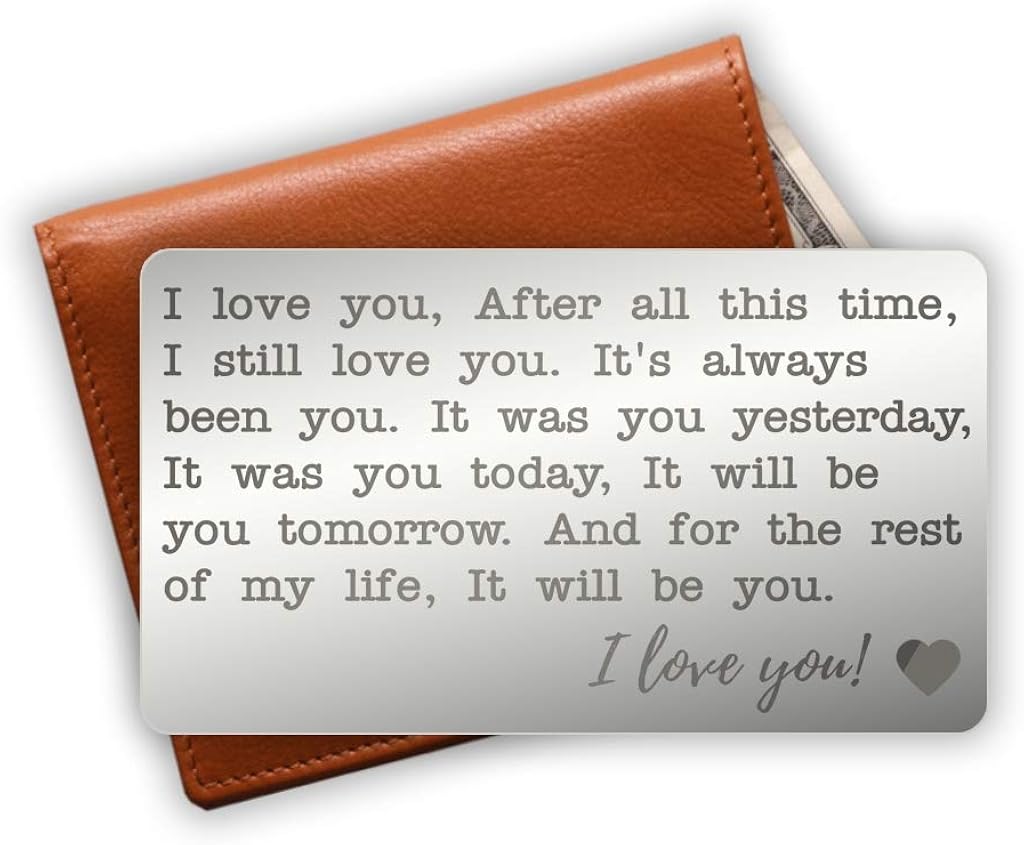 I love you, After all this time,
I still love you. It's always
been you. It was you yesterday,
It was you today, It will be
you tomorrow. And for the rest
of my life, It will be you.
I love you!